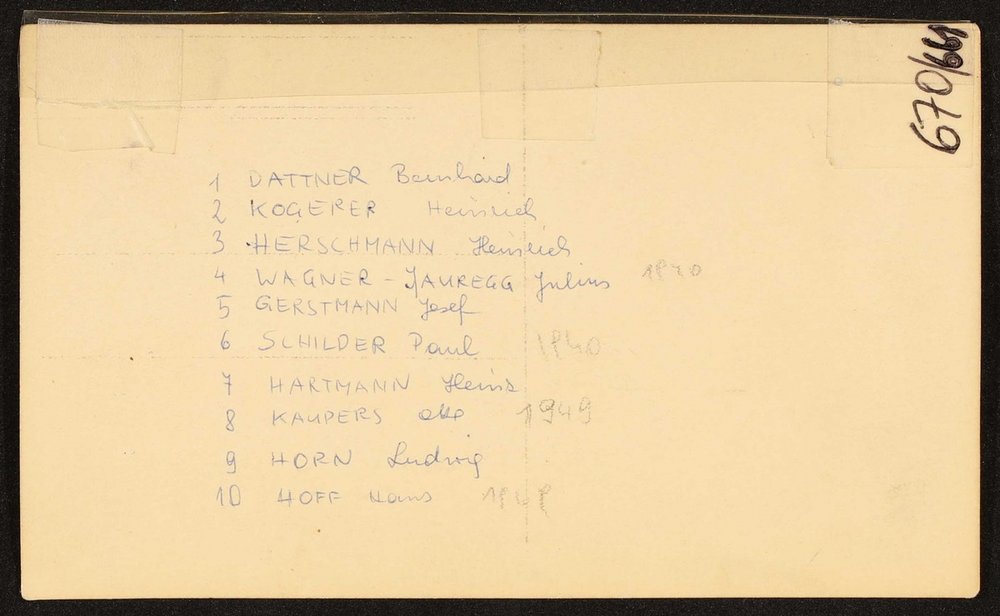 670/
1 DATTNER Bernhard
2 KOGERER Heinrich
3 HERSCHMANN Heinrich
4 WAGNER-JAUREGG Julius
5 GERSTMANN Josef
6 SCHILDER Paul 1940
7 HARTMANN Heinz
8 KAUPERS Otto 1949
9 HORN Ludwig
10 HOFF Hans